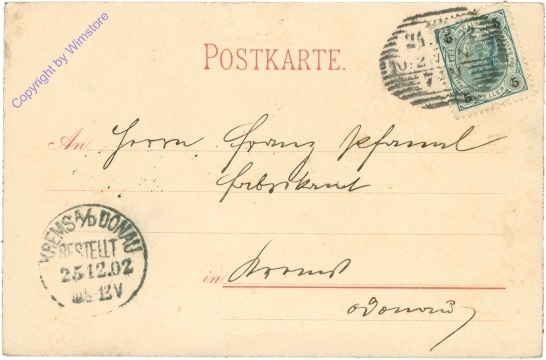 Copyright by Wimstore
POSTKARTE.
5 5
5 5
An Herrn Franz Pfannl
Fabrikant
in Krems
a Donau
KREMS A/D DONAU
BESTELLT
25 12.02